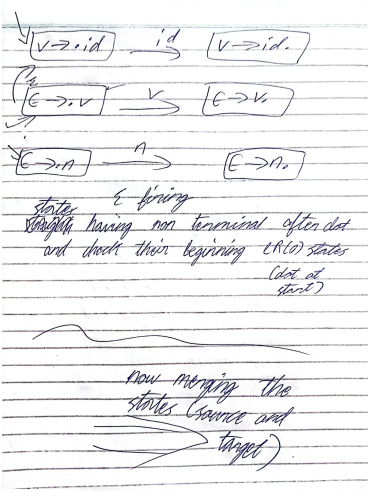 V→.id id V→id.
ε
E→.V V E→V.
E→.n n E→n.
ε firing
states having non terminal after dot
and check their beginning LR(0) states
(dot at
start)
now merging the
states (source and
target)